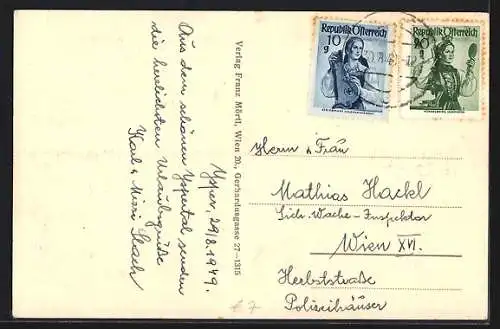 Ysper, 29/8.1949.
Aus dem schönen Yspertal senden
die herzlichsten Urlaubsgrüße
Karl u. Mizzi Stach
Verlag Franz Mörtl, Wien 20., Gerhardusgasse 27—1315
REPUBLIK ÖSTERREICH
10
g
REPUBLIK ÖSTERREICH
20
g
Herrn u. Frau
Mathias Hackl
Sich. Wache-Inspektor
Wien XVI.
Herbststraße
Polizeihäuser